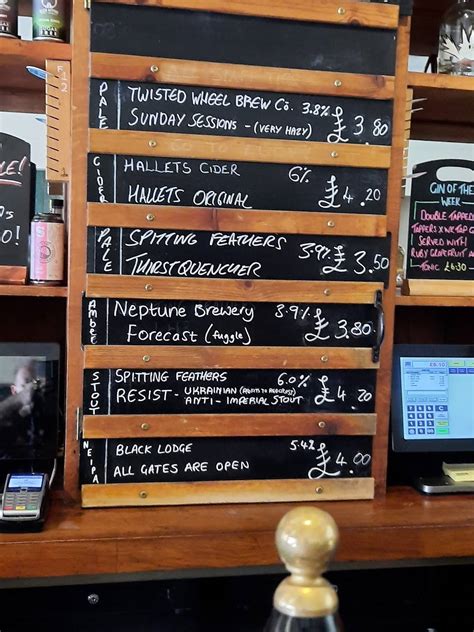 PALE
TWISTED WHEEL BREW Co. 3.8%
SUNDAY SESSIONS - (VERY HAZY) £3.80
CIDER
HALLETS CIDER 6%
HALLETS ORIGINAL £4.20
PALE
SPITTING FEATHERS 3.9%
THIRSTQUENCHER £3.50
AMBER
NEPTUNE BREWERY 3.9%
FORECAST (fuggle) £3.80
STOUT
SPITTING FEATHERS 6.0%
RESIST - UKRAINIAN
ANTI - IMPERIAL STOUT £4.20
NEIPA
BLACK LODGE 5.4%
ALL GATES ARE OPEN £4.00
GIN OF THE
WEEK
DOUBLE TAPPED
SERVED WITH
RUBY GRAPEFRUIT
TONIC £6.30